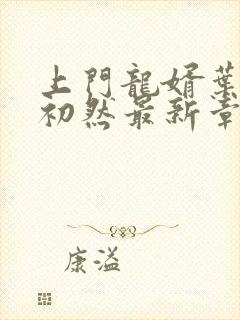 上門龍婿葉
初然最新章
康溢